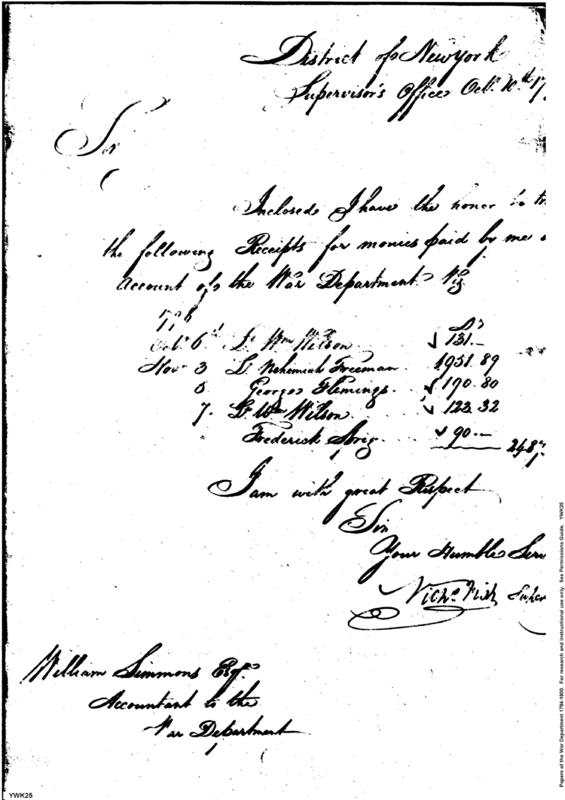 District of New York
Supervisor's Office Octr. 10th 17
Sir
Inclosed I have the honor to tr
the following Receipts for monies paid by me
Account of the War Department Viz
Ds
6 Lt Wm Wilson 131.—
Novr 3 Lt Nehemiah Freeman 1951.89
George Flemings 190.80
7. Lt Wm Wilson 123.32
Frederick 90.—
I am with great Respect
Sir
Your Humble Serv
Nichs Fish Super
William Simmons Esqr.
Accountant to the
War Department
YWK25
Papers of the War Department 1784-1800. For research and instructional use only. See Permissions Guide. YWK25